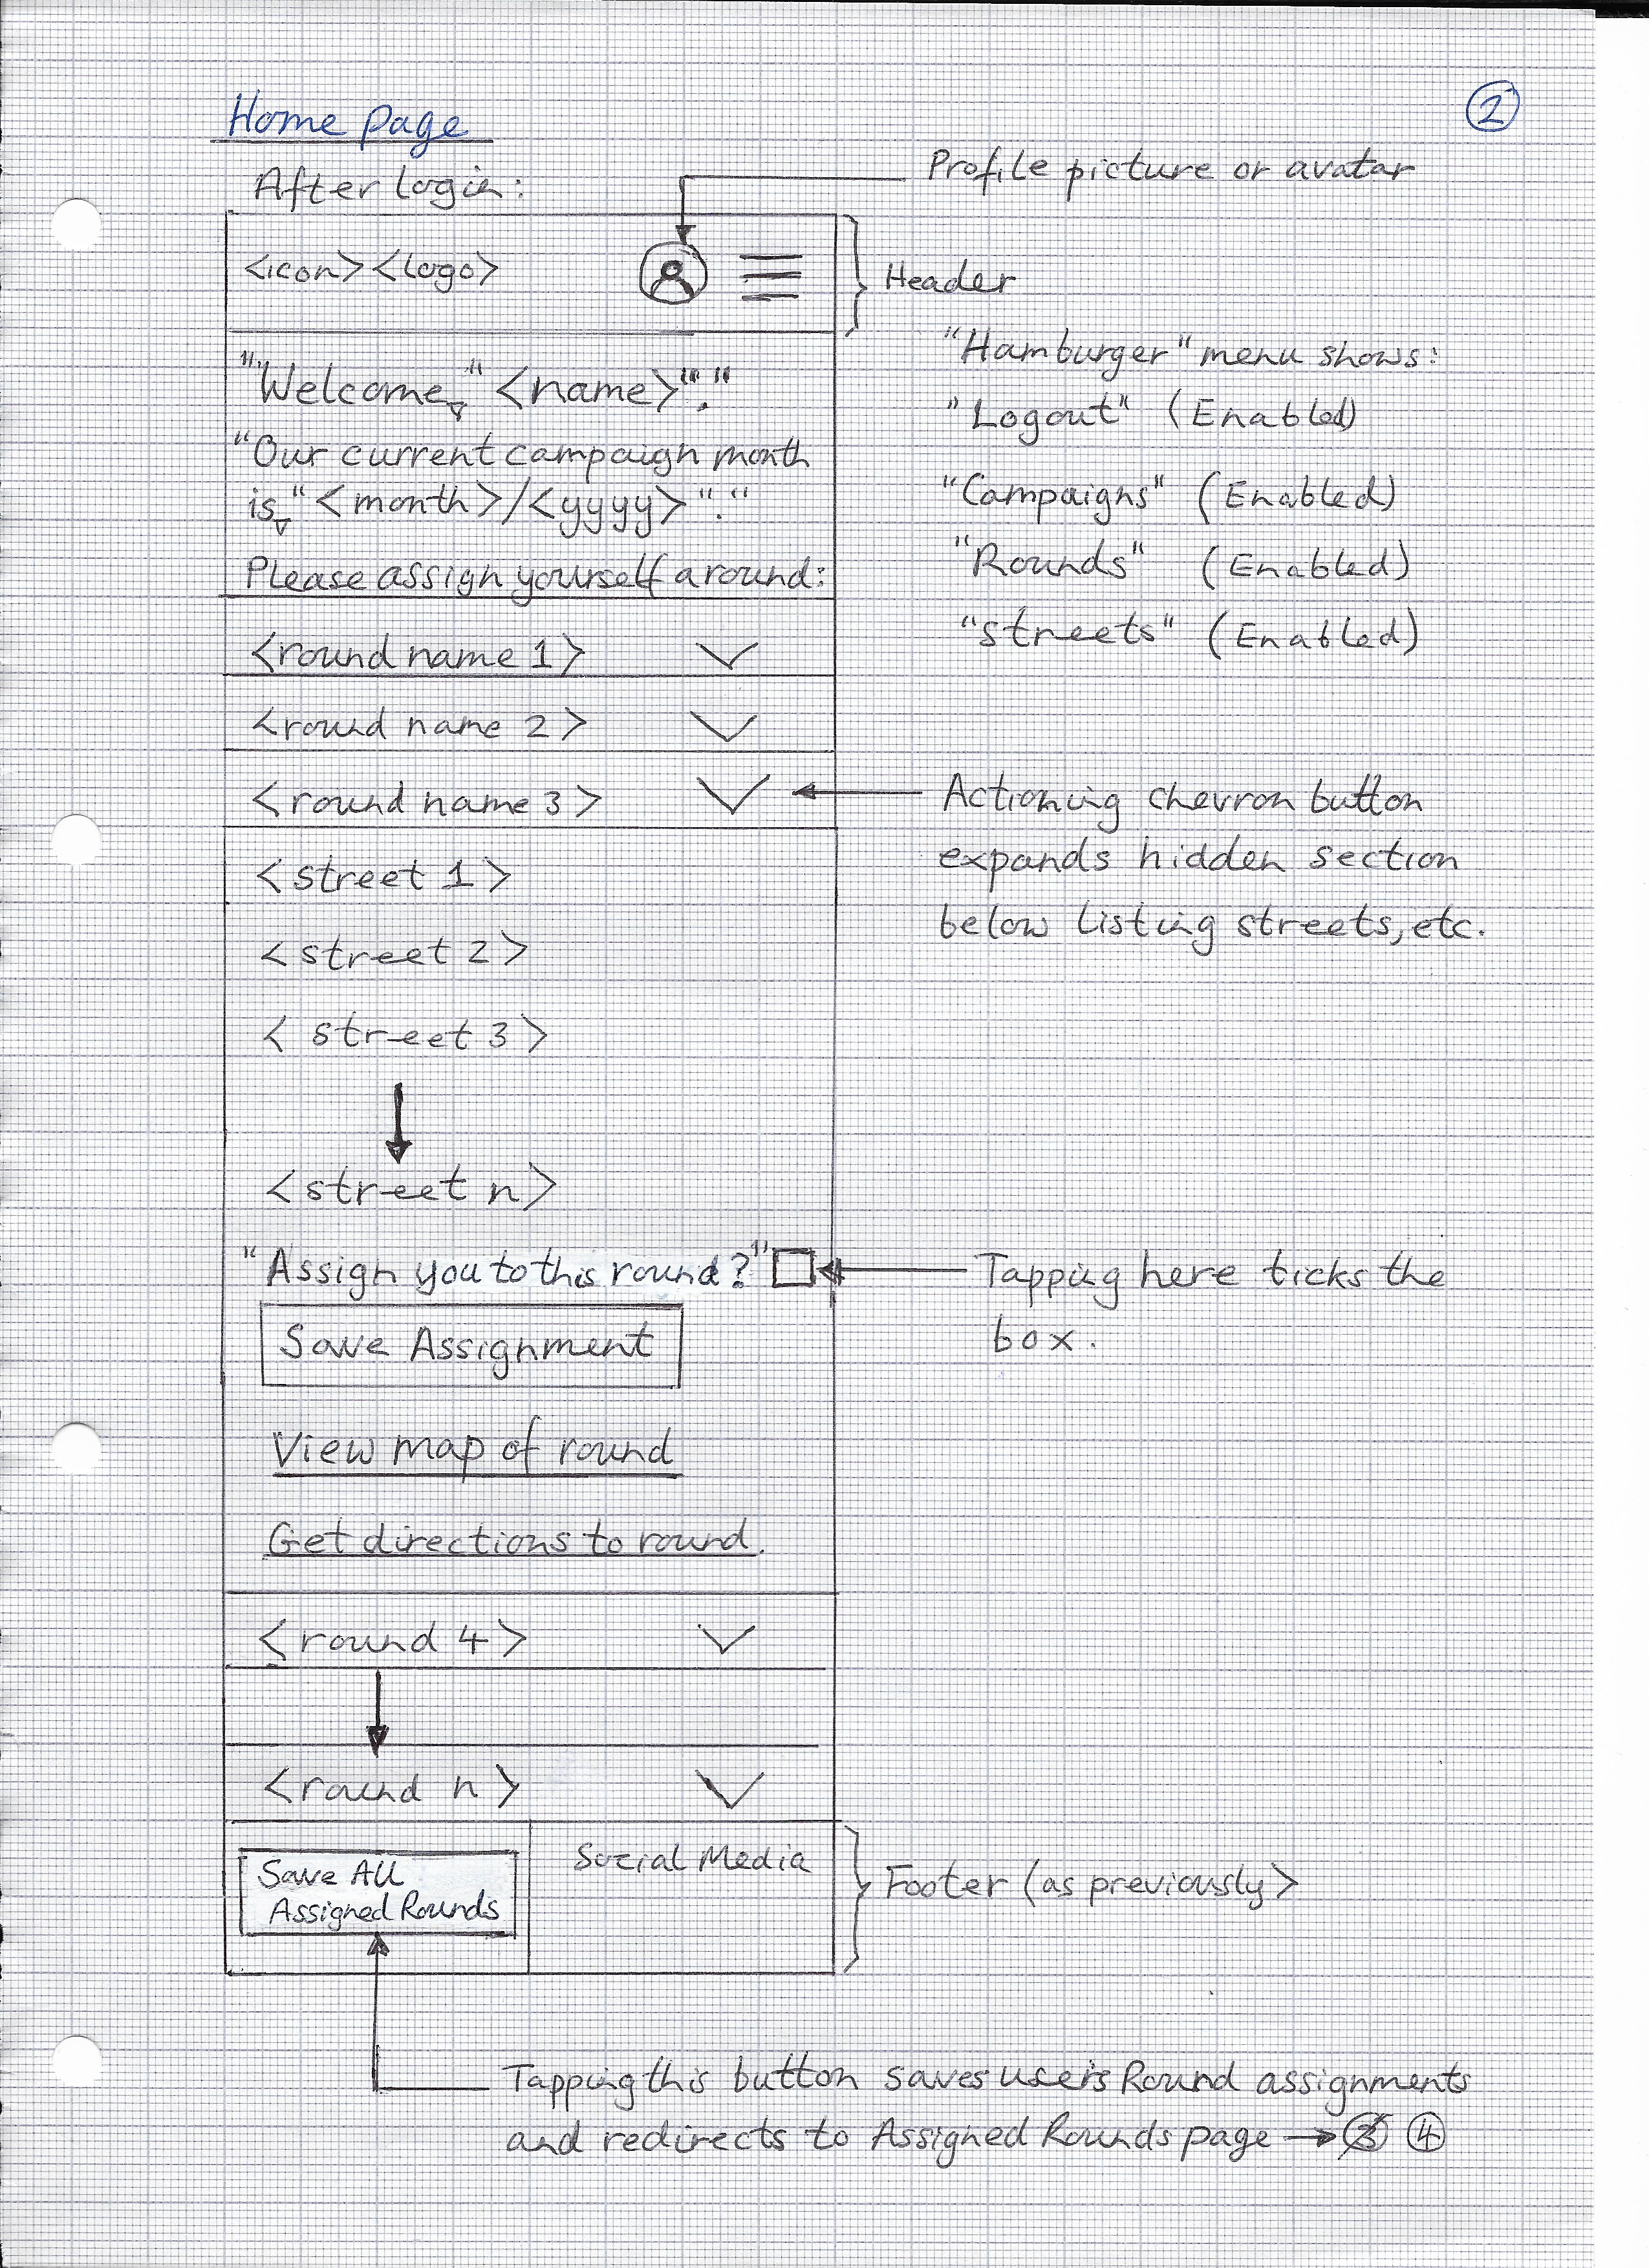 Home page
2
After Login:
Profile picture or avatar
<icon><logo>
Header
"Hamburger" menu shows:
"Logout" (Enabled)
"Campaigns" (Enabled)
"Rounds" (Enabled)
"Streets" (Enabled)
"Welcome, " <name>"."
"Our current campaign month
is "<month>/<yyyy>"."
Please assign yourself a round:
<round name 1>
<round name 2>
<round name 3>
Actioning chevron button
expands hidden section
below listing streets, etc.
<street 1>
<street 2>
<street 3>
<street n>
"Assign you to this round?"
Tapping here ticks the
box.
Save Assignment
View map of round
Get directions to round.
<round 4>
<round n>
Save All
Assigned Rounds
Social Media
Footer (as previously>
Tapping this button saves user's Round assignments
and redirects to Assigned Rounds page → 3 4